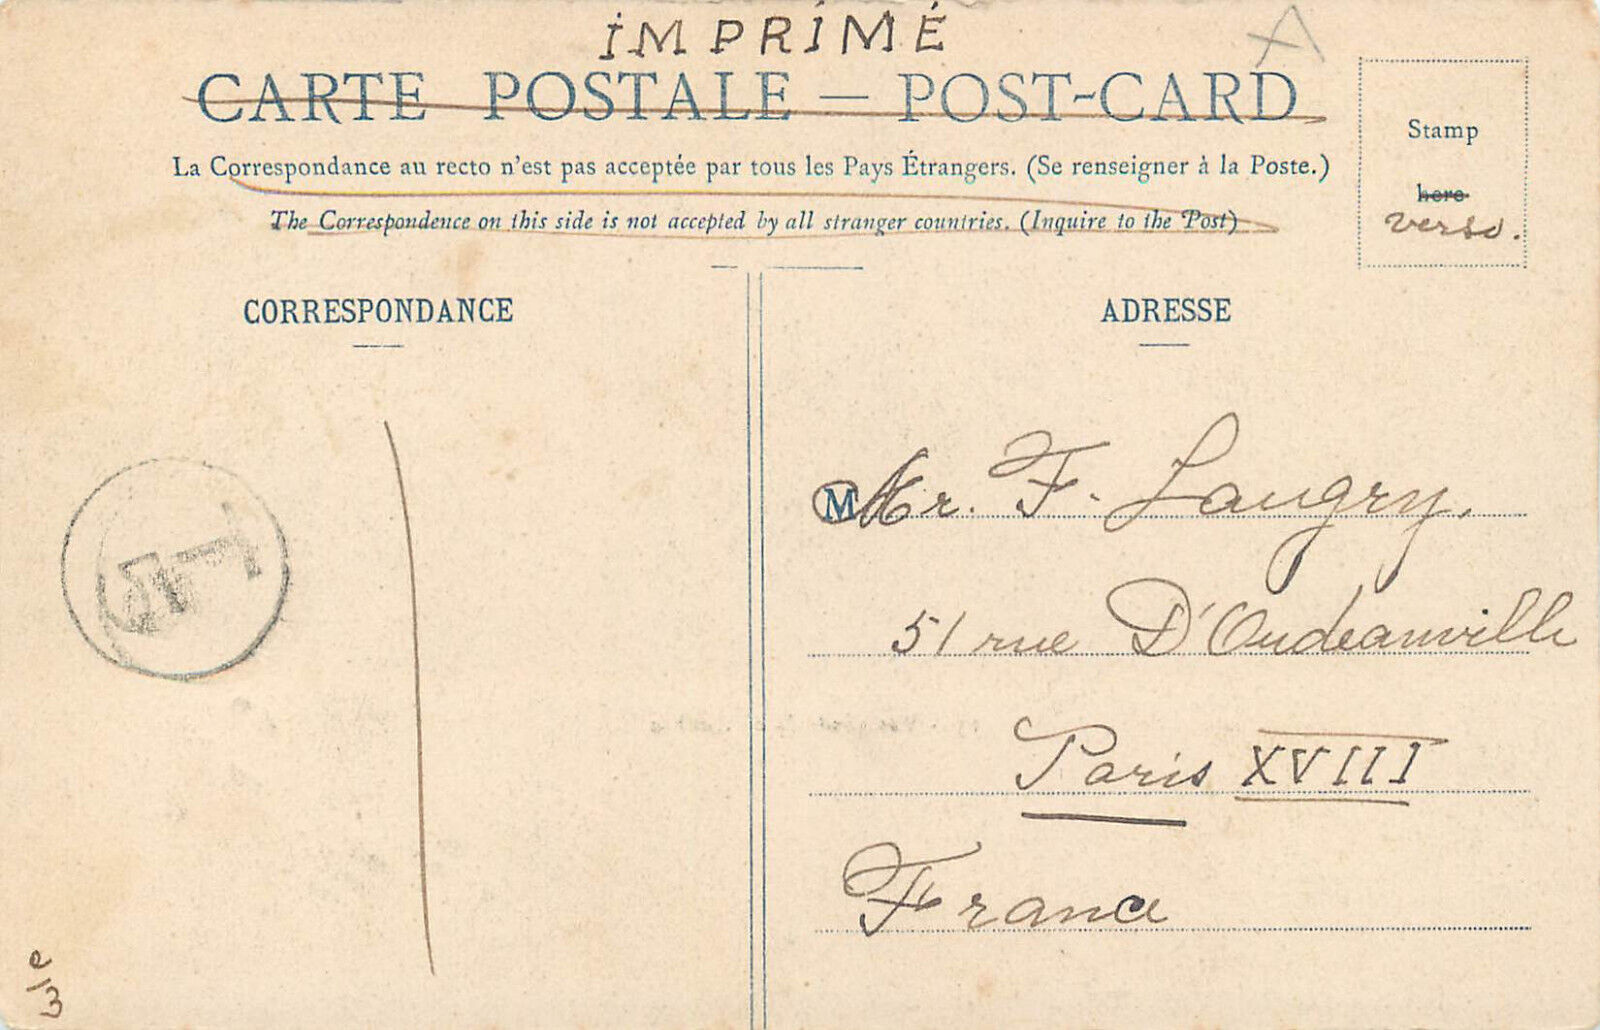 IMPRIMÉ
A
CARTE POSTALE — POST-CARD
La Correspondance au recto n'est pas acceptée par tous les Pays Étrangers. (Se renseigner à la Poste.)
The Correspondence on this side is not accepted by all stranger countries. (Inquire to the Post)
Stamp
here
verso.
CORRESPONDANCE
ADRESSE
M Mr. F. Laugry,
51 rue D'Oudeauville
Paris XVIII
France
T
e
3